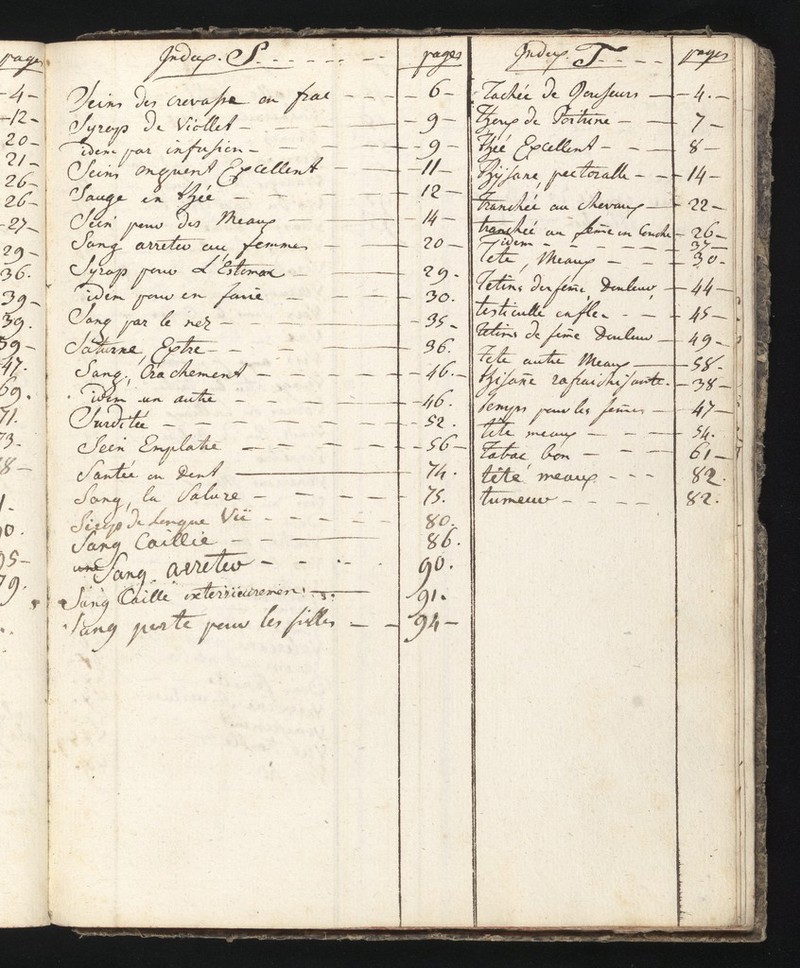 pages
-4-
-12-
20-
21-
26-
26-
-27-
29-
36.
39-
39.
39-
47.
69.
71.
73.
8-
1-
90.
95-
79.
Index. S. pages
Seins des crevasse on frac - - - 6-
Syrop de Viollet - - 9-
idem par infusion - - - - 9-
Seins onguent Excellent - 11-
Sauge en thée - - - - 12-
Sein pour des Meaux - - - 14-
Sang arreter au femmes - 20-
Syrop pour L'Estomac - - 29-
idem pour en faire - - - 30.
Sang par le nez - - - 35-
Saturne, Extre - - - - 36.
Sang, Crachement - - - - 46.-
idem un autre - - - - 46.
Surditée - - - - - - 52.
Sein Emplatre - - - - - 56-
Santée en Dent - 74.
Sang, la Salure - - - - 75.
Sirop de Longue Vië - - - - - 80.
Sang Caillie - - - 86.
Sang arreter - - - . 90.
Sang Caillé exterieuremen. - 91.
Sang perte pour les filles - - 94-
Index. T. - - - pages
Tachée de Rousseurs - 4.-
Thoux de Poitrine - - 7-
Thée Excellent - - - 8-
Thisane, pectoralle - - - 14-
Tranchée au chevaux - 22-
tranchée au feme en Couche - 26-
idem - - - 37-
Tete, Meaux - - - - 30-
Tetins des feme, Douleur - 44-
testiculle enflee - - - 45-
Tetins de feme Douleur - 49-
Tete autre Meaux - 58-
Thisane rafraichisante. - 38-
Temps pour les femes - 47-
tete meaux - - - 54.
Tabac bon - - - - 61-
tété meaux - - - 82.
tumeur - - - - 82.